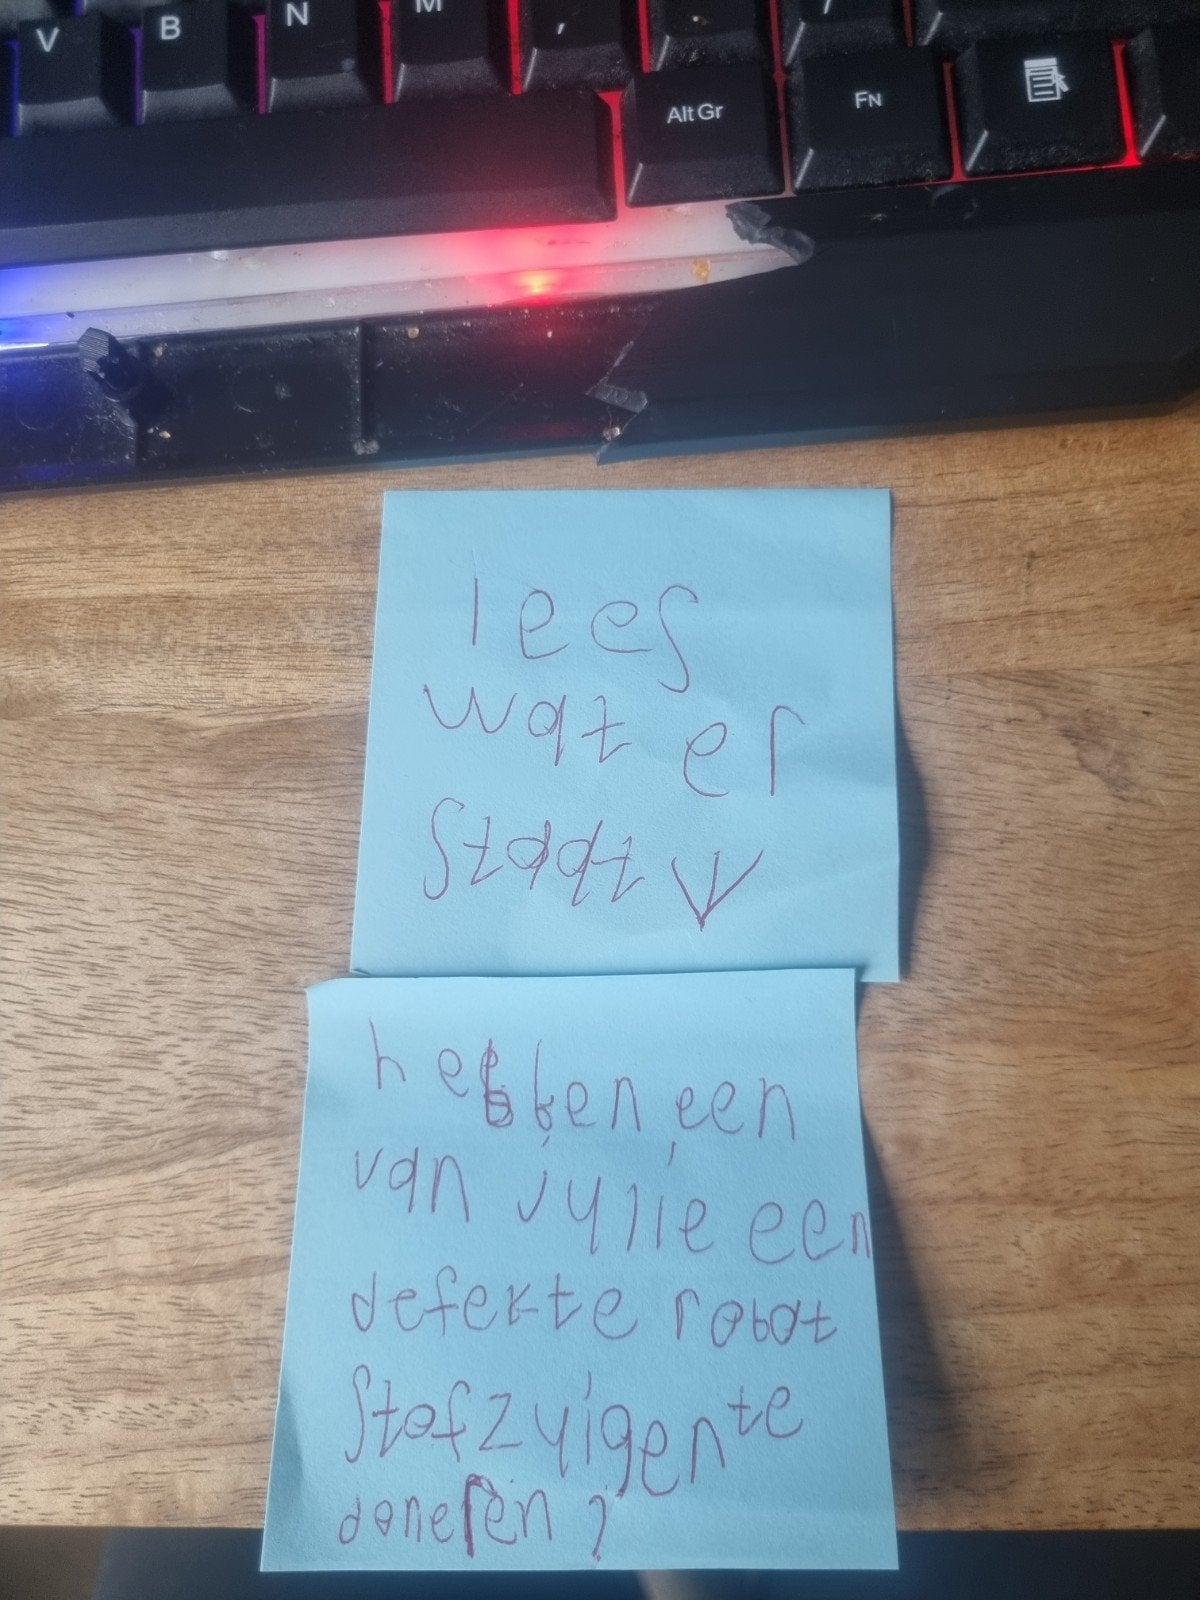 V B N M ,
Alt Gr FN
lees
wat er
staat
hebben een
van jylie een
defekte robot
stofzyigen te
doneren ?